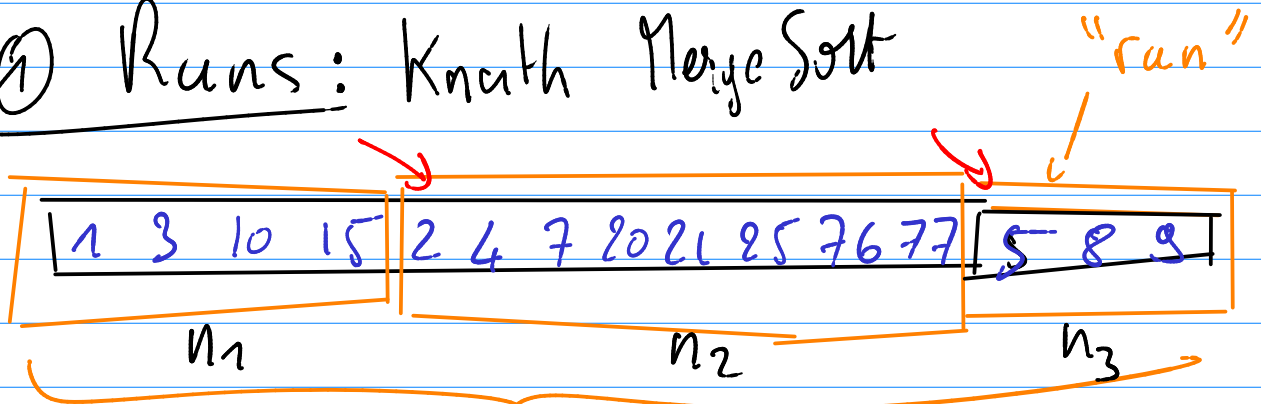 ① Runs: Knuth MergeSort
"run"
1 3 10 15 2 4 7 20 21 25 76 77 5 8 9
n1 n2 n3